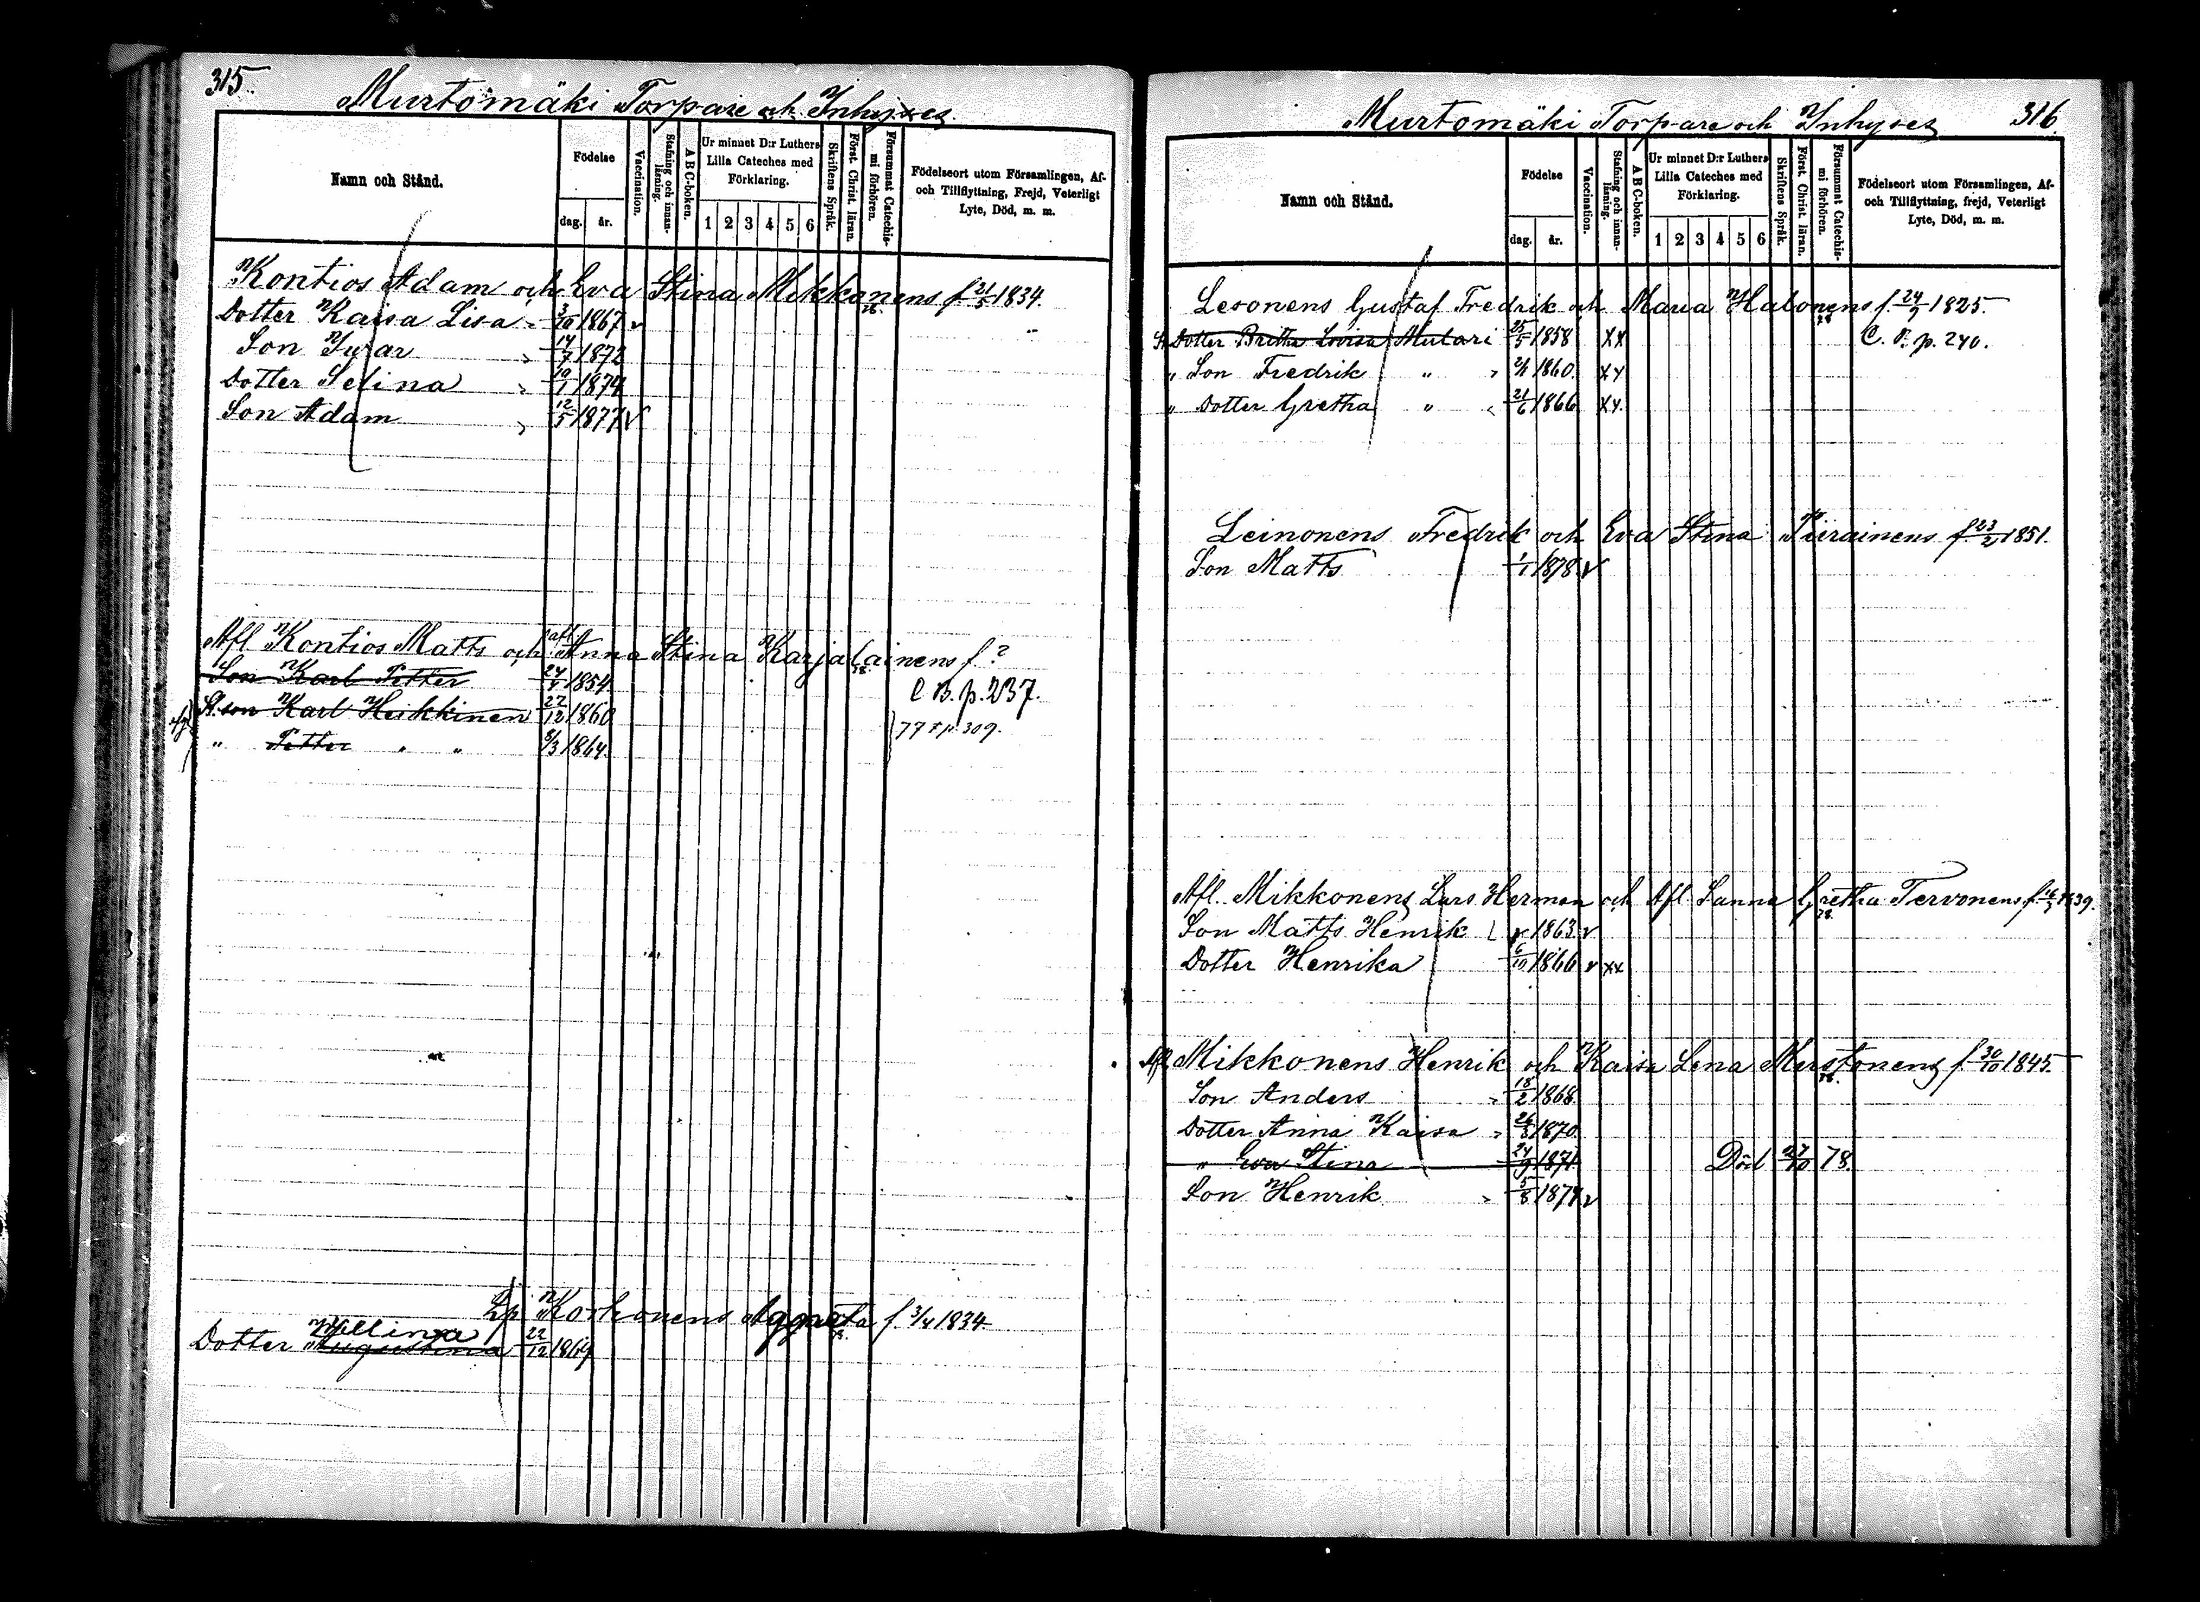 315.
Murtomäki Torpare och Inhyses.
Namn och Stånd.
Födelse
dag.
år.
Vaccination.
Stafning och innanläsning.
A B C-boken.
Ur minnet D:r Luthers
Lilla Cateches med
Förklaring.
1 2 3 4 5 6
Skriftens Språk.
Först. Christ. läran.
Försummat Catechismi förhören.
Födelseort utom Församlingen, Af-
och Tillflyttning, Frejd, Veterligt
Lyte, Död, m. m.
Kontios Adam och Eva Stina Mikkonens f. 21/5 1834.
Dotter Kaisa Lisa 3/10 1867
Son Ivar 14/7 1872
Dotter Selina 10/1 1874
Son Adam 12/5 1877
Afl Kontios Matts och afl Anna Stina Karjalainens f. ?
Son Karl Petter 24/1 1854 C B. p. 237.
St. son Karl Heikkinen 27/12 1860
" Petter " " 8/3 1864 77 p. 309.
Lp Korhonens Aggata f. 3/4 1834
Dotter Wellina
Augustina 22/12 1864
316.
Murtomäki Torpare och Inhyses
Namn och Stånd.
Födelse
dag.
år.
Vaccination.
Stafning och innanläsning.
A B C-boken.
Ur minnet D:r Luthers
Lilla Cateches med
Förklaring.
1 2 3 4 5 6
Skriftens Språk.
Först. Christ. läran.
Försummat Catechismi förhören.
Födelseort utom Församlingen, Af-
och Tillflyttning, frejd, Veterligt
Lyte, Död, m. m.
Lesonens Gustaf Fredrik och Maria Halonens f. 24/9 1825
St. Dotter Britha Lovisa Mutari 25/5 1858 xx C. B. p. 240.
" Son Fredrik " " 2/1 1860 xx
" Dotter Gretha " " 21/6 1866 xx
Leinonens Fredrik och Eva Stina Piirainens f. 23/2 1851.
Son Matts 1/1 1878
Afl. Mikkonens Lars Herman och Afl Sanna Gretha Tervonens f. 1839.
Son Matts Henrik 1863
Dotter Henrika 6/10 1866 xx
Afl Mikkonens Henrik och Kaisa Lena Mustonens f. 30/10 1845
Son Anders 18/2 1868
Dotter Anna Kaisa 26/8 1870
" Eva Stina 24/9 1871 Död 27/10 78
Son Henrik 5/8 1877